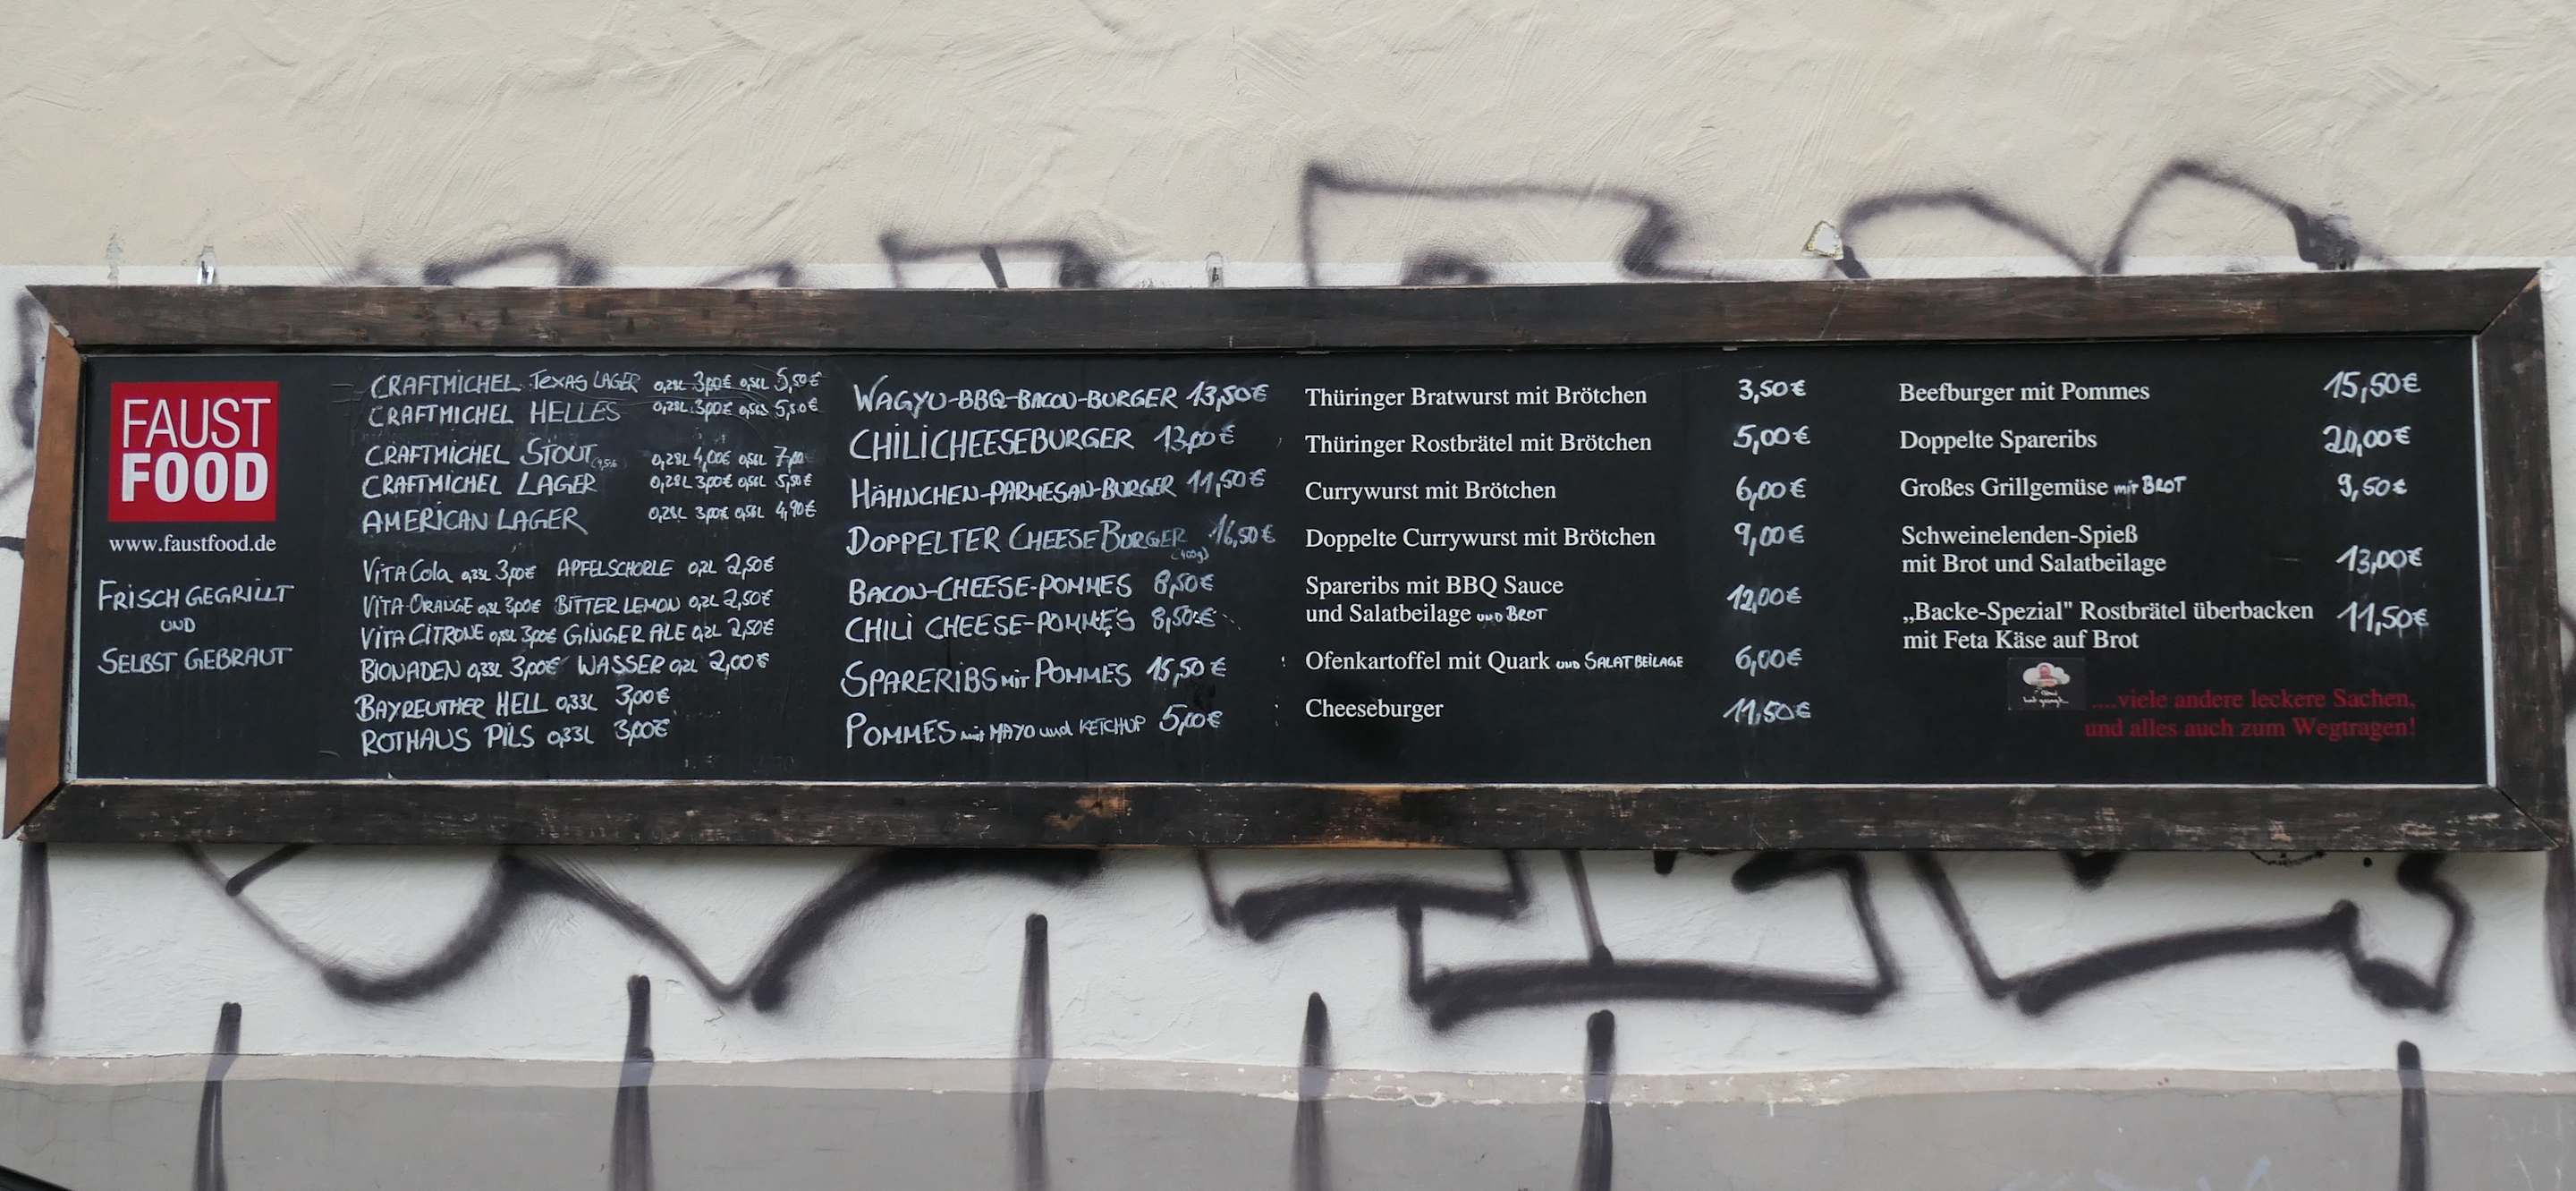 FAUST
FOOD
www.faustfood.de
FRISCH GEGRILLT
UND
SELBST GEBRAUT
CRAFTMICHEL TEXAS LAGER 0,28L 3,00€ 0,56L 5,50€
CRAFTMICHEL HELLES 0,28L 3,00€ 0,56L 5,50€
CRAFTMICHEL STOUT 0,28L 4,00€ 0,56L
CRAFTMICHEL LAGER 0,28L 3,00€ 0,56L 5,50€
AMERICAN LAGER 0,28L 3,00€ 0,56L 4,90€
VITA Cola 0,33L 3,00€ APFELSCHORLE 0,2L 2,50€
VITA-ORANGE 0,33L 3,00€ BITTER LEMON 0,2L 2,50€
VITA CITRONE 0,33L 3,00€ GINGER ALE 0,2L 2,50€
BIONADEN 0,33L 3,00€ WASSER 0,2L 2,00€
BAYREUTHER HELL 0,33L 3,00€
ROTHAUS PILS 0,33L 3,00€
WAGYU-BBQ-BACON-BURGER 13,50€
CHILICHEESEBURGER 13,00€
HÄHNCHEN-PARMESAN-BURGER 11,50€
DOPPELTER CHEESEBURGER 16,50€
(400g)
BACON-CHEESE-POMMES 8,50€
CHILI CHEESE-POMMES 8,50€
SPARERIBS MIT POMMES 15,50€
POMMES mit MAYO und KETCHUP 5,00€
Thüringer Bratwurst mit Brötchen 3,50€
Thüringer Rostbrätel mit Brötchen 5,00€
Currywurst mit Brötchen 6,00€
Doppelte Currywurst mit Brötchen 9,00€
Spareribs mit BBQ Sauce
und Salatbeilage UND BROT 12,00€
Ofenkartoffel mit Quark UND SALATBEILAGE 6,00€
Cheeseburger 11,50€
Beefburger mit Pommes 15,50€
Doppelte Spareribs 20,00€
Großes Grillgemüse MIT BROT 9,50€
Schweinelenden-Spieß
mit Brot und Salatbeilage 13,00€
„Backe-Spezial" Rostbrätel überbacken 11,50€
mit Feta Käse auf Brot
....viele andere leckere Sachen,
und alles auch zum Wegtragen!